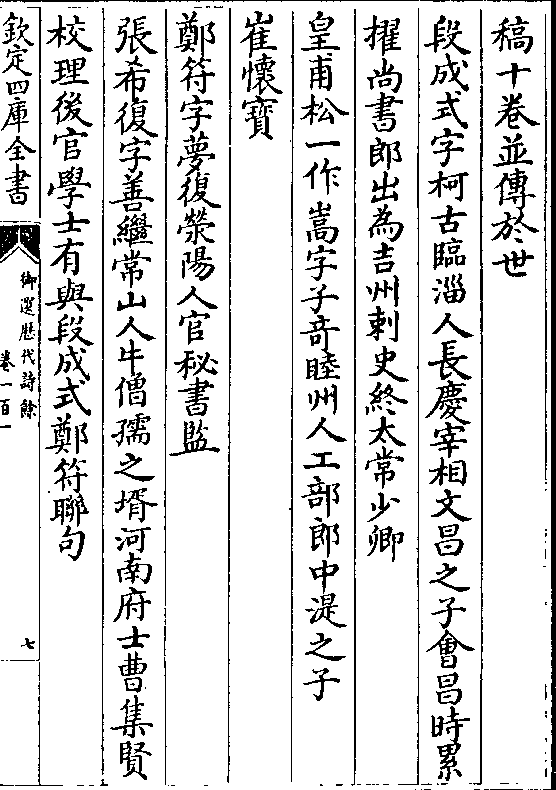 稿十卷並傳於世
段成式字柯古臨淄人長慶宰相文昌之子會昌時累
擢尚書郎出為吉州刺史終太常少卿
皇甫松一作嵩字子奇睦州人工部郎中湜之子
崔懷寶
鄭符字夢復滎陽人官秘書監
張希復字善繼常山人牛僧孺之壻河南府士曹集賢
校理後官學士有與段成式鄭符聯句
欽定四庫全書
御選歷代詩餘
卷一百一
七